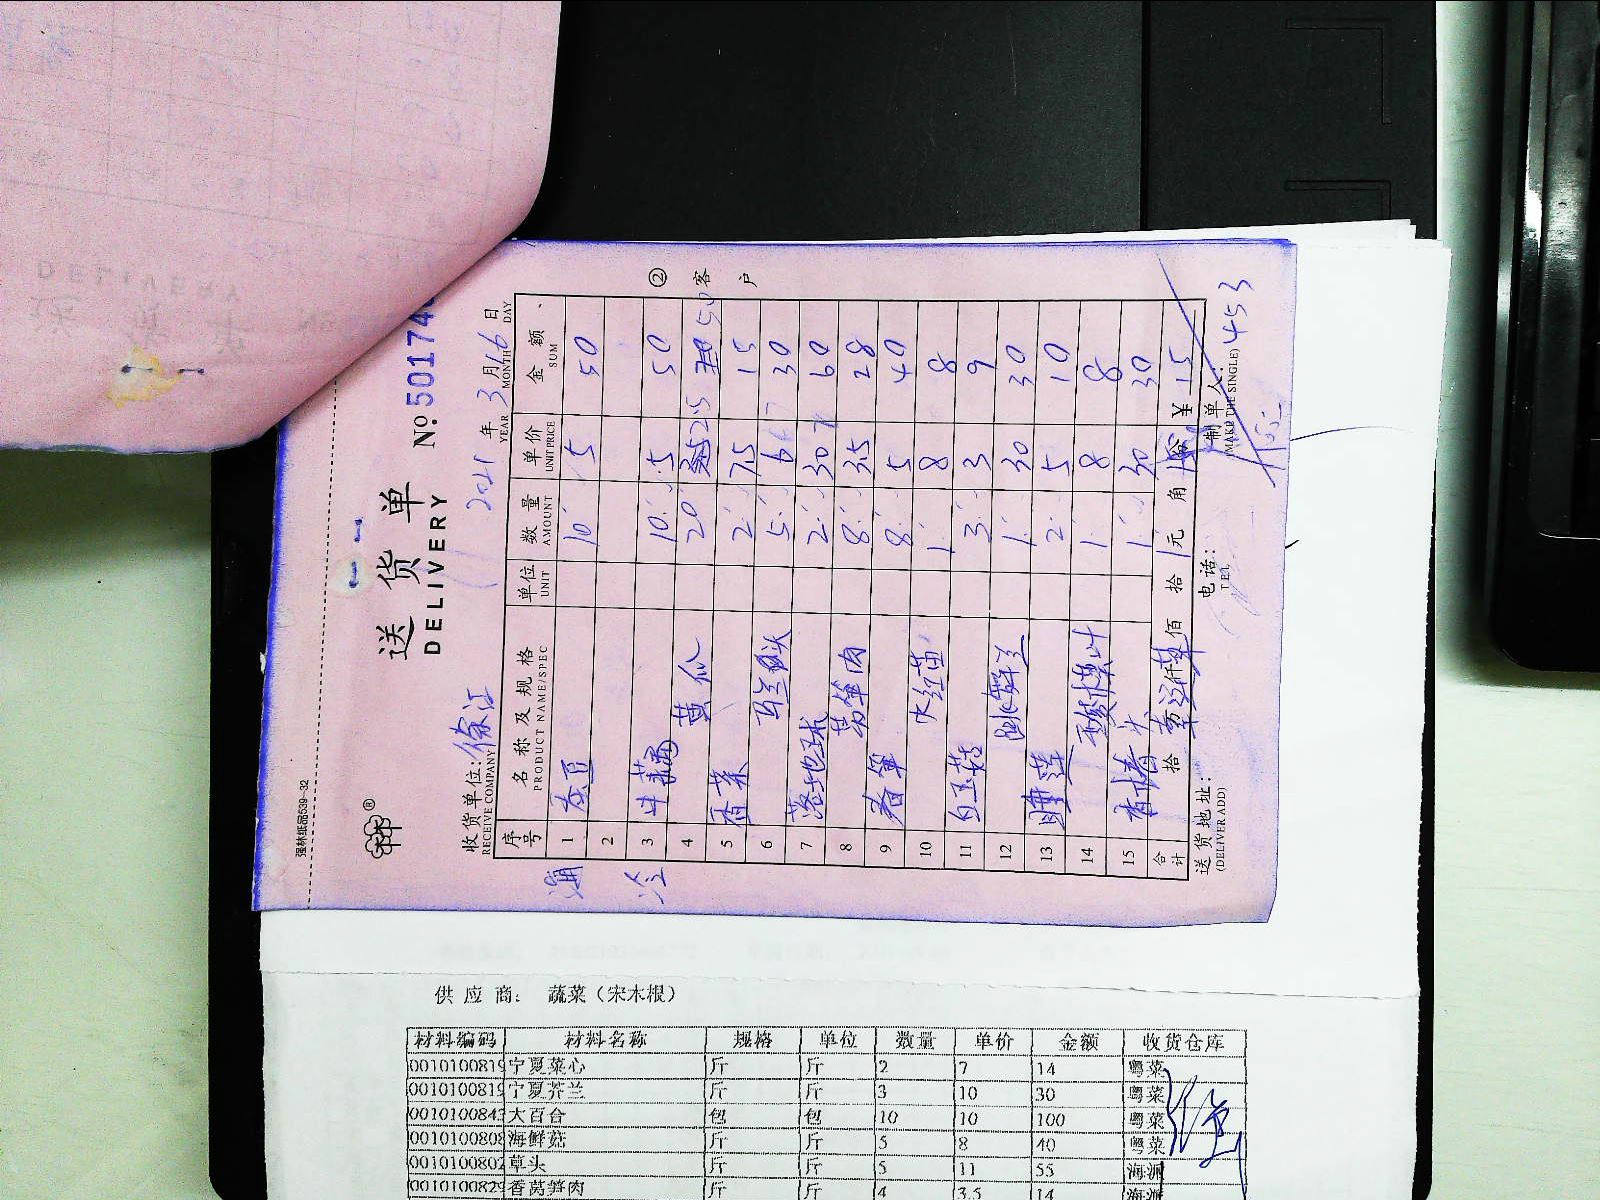 强林纸品539-32
送货单
DELIVERY
№ 50174
收货单位: 徐汇 2021 年 3 月 16 日
RECEIVE COMPANY YEAR MONTH DAY
序号 名称及规格 单位 数量 单价 金额
PRODUCT NAME/SPEC UNIT AMOUNT UNIT PRICE SUM
1 10 5 50
2
3 10 5 50
4 黄瓜 20 2.5 50
5 香菜 2 7.5 15
6 5 6 30
7 落地球 2 30 60
8 莴笋肉 8 3.5 28
9 春笋 8 5 40
10 水红苗 1 8 8
11 白玉菇 3 3 9
12 1 30 30
13 睡莲 2 5 10
14 酸模叶 1 8 8
15 香椿头 1 30 30
合计 拾 佰 拾 元 角 ¥ 15
② 客户
送货地址: 电话: 制单人: 453
(DELIVER ADD) TEL (MAKE THE SINGLE)
供应商: 蔬菜（宋木根）
材料编码 材料名称 规格 单位 数量 单价 金额 收货仓库
001010081 宁夏菜心 斤 斤 2 7 14 粤菜
001010081 宁夏芥兰 斤 斤 3 10 30 粤菜
001010084 大百合 包 包 10 10 100 粤菜
001010080 海鲜菇 斤 斤 5 8 40 粤菜
001010080 草头 斤 斤 5 11 55 海派
001010082 香莴笋肉 斤 斤 4 3.5 14 海派